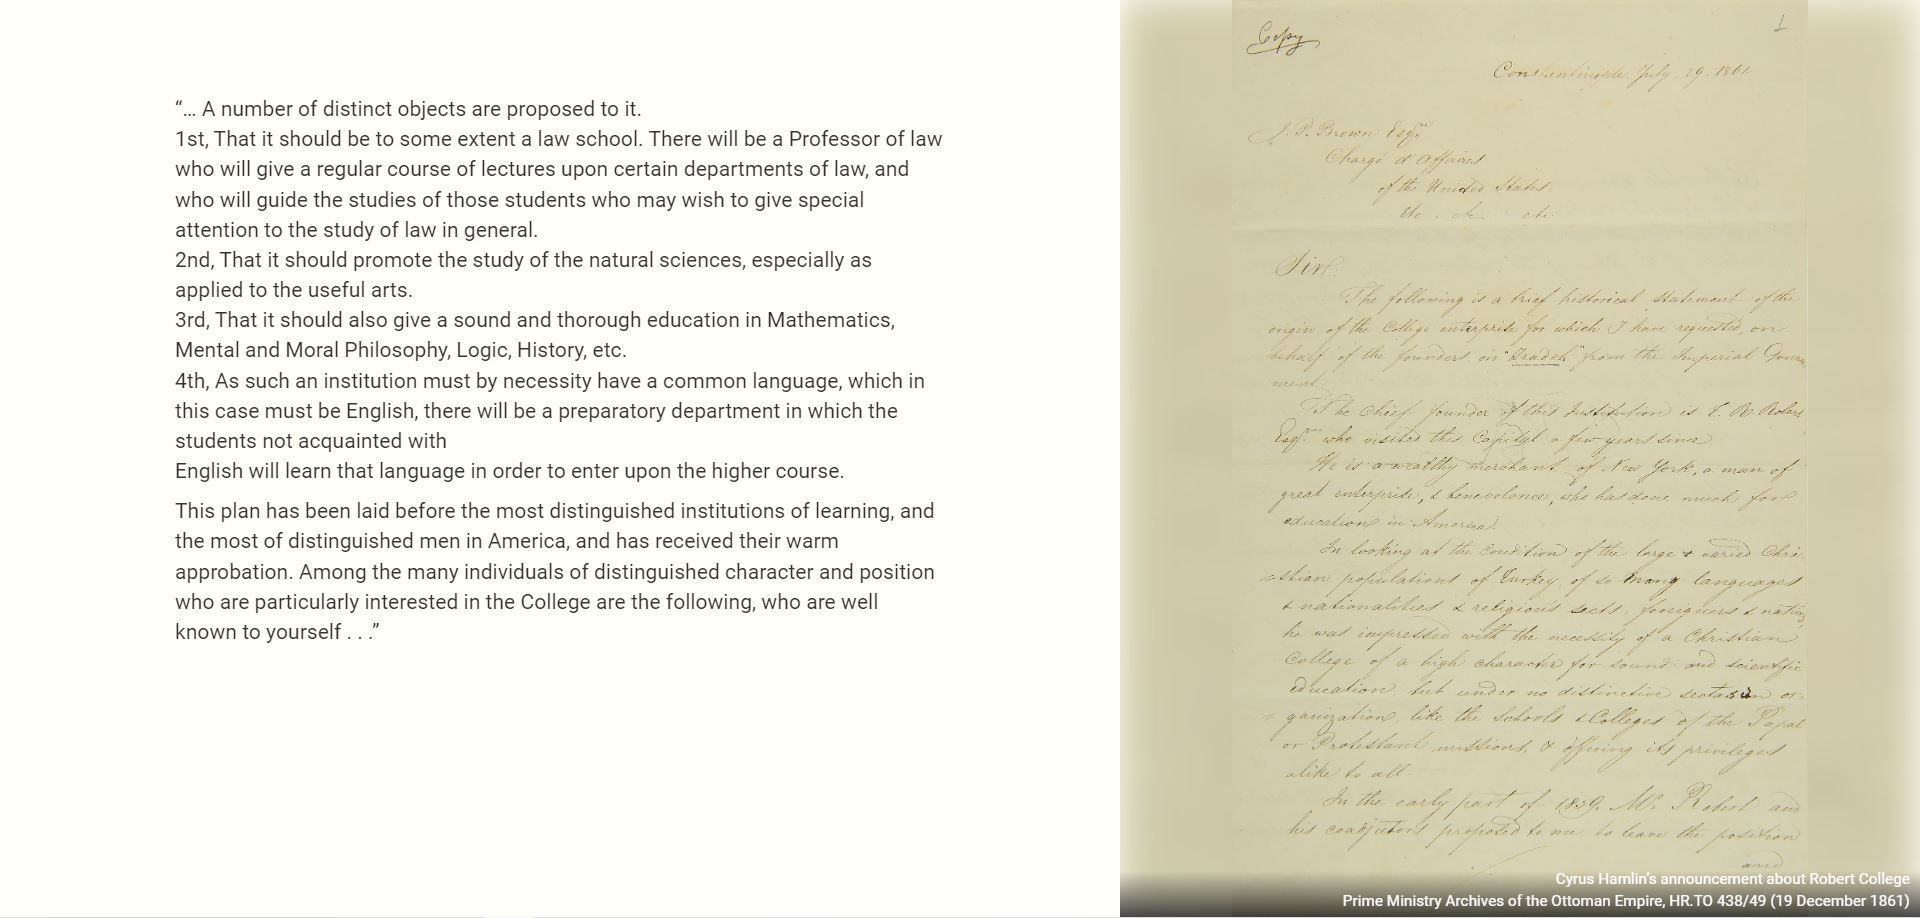 “... A number of distinct objects are proposed to it.
1st, That it should be to some extent a law school. There will be a Professor of law
who will give a regular course of lectures upon certain departments of law, and
who will guide the studies of those students who may wish to give special
attention to the study of law in general.
2nd, That it should promote the study of the natural sciences, especially as
applied to the useful arts.
3rd, That it should also give a sound and thorough education in Mathematics,
Mental and Moral Philosophy, Logic, History, etc.
4th, As such an institution must by necessity have a common language, which in
this case must be English, there will be a preparatory department in which the
students not acquainted with
English will learn that language in order to enter upon the higher course.
This plan has been laid before the most distinguished institutions of learning, and
the most of distinguished men in America, and has received their warm
approbation. Among the many individuals of distinguished character and position
who are particularly interested in the College are the following, who are well
known to yourself . . .”
Copy
1
Constantinople July 29. 1861.
J. P. Brown Esqre
Chargé d'Affaires
of the United States.
etc. etc. etc.
Sir.
The following is a brief historical statement of the
origin of the College enterprise for which I have requested, on
behalf of the founders, an "Iradeh" from the Imperial Govern
ment.
The chief founder of this Institution is C. R. Robert
Esqr. who visited this Capital a few years since.
He is a wealthy merchant of New York, a man of
great enterprise, & benevolence, who has done much for
education in America.
In looking at the condition of the large & varied Chri-
=stian populations of Turkey, of so many languages
& nationalities & religious sects, foreigners & natives,
he was impressed with the necessity of a Christian
College of a high character for sound and scientific
education, but under no distinctive sectarian or-
=ganization, like the Schools & Colleges of the Papal
or Protestant missions, & offering its privileges
alike to all.
In the early part of 1859. Mr. Robert and
his coadjutors proposed to me to leave the position
and
Cyrus Hamlin's announcement about Robert College
Prime Ministry Archives of the Ottoman Empire, HR.TO 438/49 (19 December 1861)